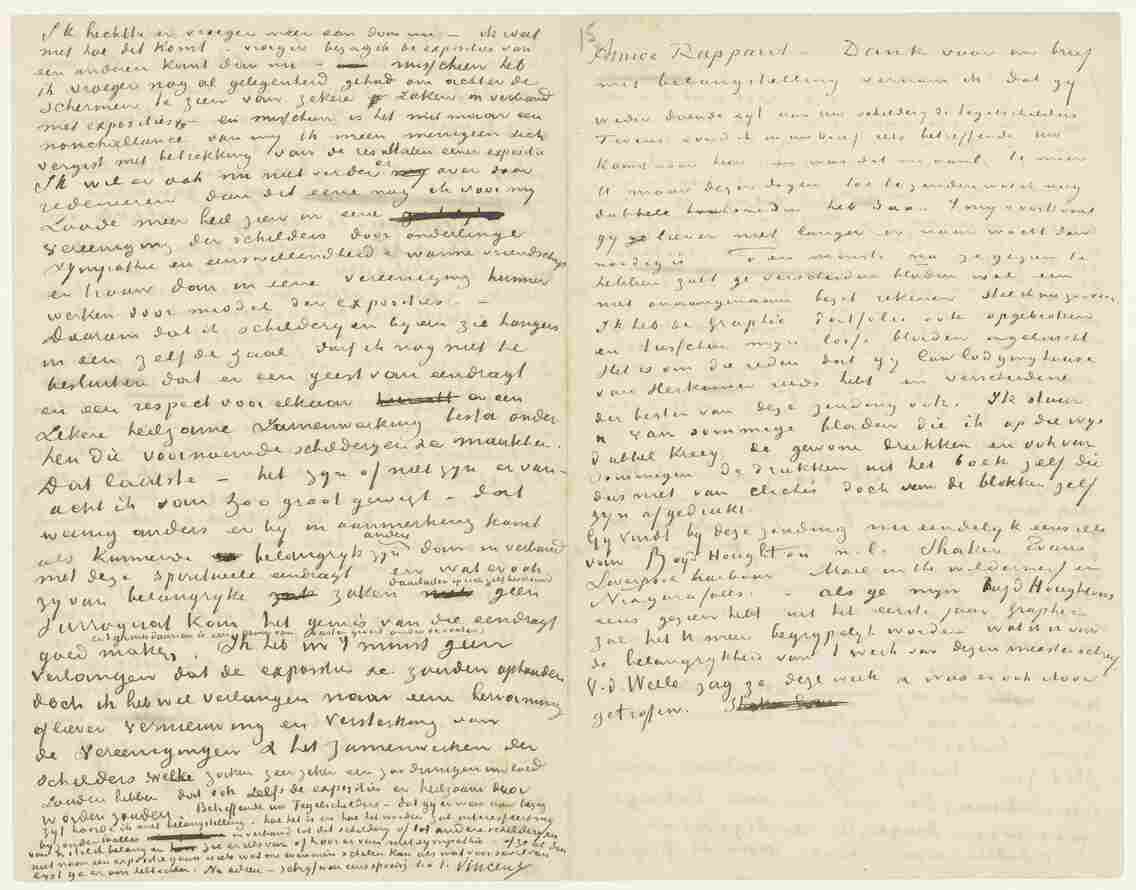 Ik hechtte er vroeger meer aan dan nu – ik weet
niet hoe dit komt – vroeger bezag ik de exposities van
een anderen kant dan nu – misschien heb
ik vroeger nog al gelegenheid gehad om achter de
schermen te zien van zekere zaken in verband
met exposities – en misschien is het niet maar een
nonchallance van my ik meen menigeen zich
vergist met betrekking van de resultaten eener expositie
Ik wil er ook nu niet verder over door
redeneren dan dit eene nog ik voor my
zoude meer heil zien in eene
vereeniging der schilders door onderlinge
sympathie en eenswillendheid & warme vriendschap
en trouw dan in eene vereeniging hunner
werken door middel der exposities. –
Daarom dat ik schilderyen byeen zie hangen
in een zelfde zaal durf ik nog niet te
besluiten dat er een geest van eendragt
en een respect voor elkaar en een
zekere heilzame zamenwerking besta onder
hen die voornoemde schilderyen maakten.
Dat laatste – het zyn of niet zyn er van –
acht ik van zoo groot gewigt – dat
weinig anders er by in aanmerking komt
als kunnende belangryk zyn dan in verband
met deze spiritueele eendragt en wat er ook
zy van belangryke andere zaken daarlaten op zich zelf beschouwd geen
surrogaat kan het gemis van die eendragt
goed maken,
Ik heb in 't minst geen
verlangen dat de exposities zouden ophouden
doch ik heb wel verlangen naar eene hervorming
of liever vernieuwing en versterking van
de vereenigingen & het zamenwerken der
schilders welke zaken zeer zeker een zoodanigen invloed
zouden hebben dat ook zelfs de exposities er heilzaam door
worden zouden. Betreffende uw Tegelschilders – dat gy er weer aan bezig
zyt hoorde ik met belangstelling – hoe het is en hoe het worden zal interesseert my
byzonder in verband tot dit schildery of tot andere schilderyen
voor u. Ik stel belang en zie er iets van of hoor er van met sympathie – of zo het dan
niet naar een expositie gaan is iets wat me evenmin schelen kan als wat voor soort van
lyst ge er om hebt. Na adieu – schryf my eens spoedig b.t.t. Vincent
15
Amice Rappard – Dank voor uw brief
met belangstelling vernam ik dat gy
weder doende zyt aan uw schildery de Tegelschilders
Tevens vond ik in uw brief iets betreffende uw
komst naar hier en was dat my aanl. te meer
U maar dezer dagen toe te zenden wat ik nog
dubbele houtsneden heb daar.
gy ze liever niet langer er naar wacht dan
noodig is. Ten minste na ze gezien te
hebben zult ge verscheiden bladen wel een
niet onaangenaam bezit rekenen stel ik me zoo voor.
Ik heb de Graphic Portfolio ook opgebroken
en tusschen myn losse bladen ingelascht
Het is om die reden dat gy Low lodginghouse
van Herkomer reeds hebt en verscheidene
der besten van deze zending ook. Ik stuur
u van sommige bladen die ik op die wys
dubbel kreeg de gewone drukken en ook van
sommigen de drukken uit het boek zelf die
dus niet van clichés doch van de blokken zelf
zyn afgedrukt
Gy vindt by deze zending nu eindelyk eens iets
van Boyd Houghton n.l. Shaker Evans
Liverpool harbour Mail in the wilderness en
Niagarafalls. – als ge myn Boyd Houghtons
eens gezien hebt uit het eerste jaar Graphic
zal het U meer begrypelyk worden wat ik u van
de belangrykheid van 't werk van dezen meester schreef
v.d. Weele zag ze deze week & was er ook door
getroffen.